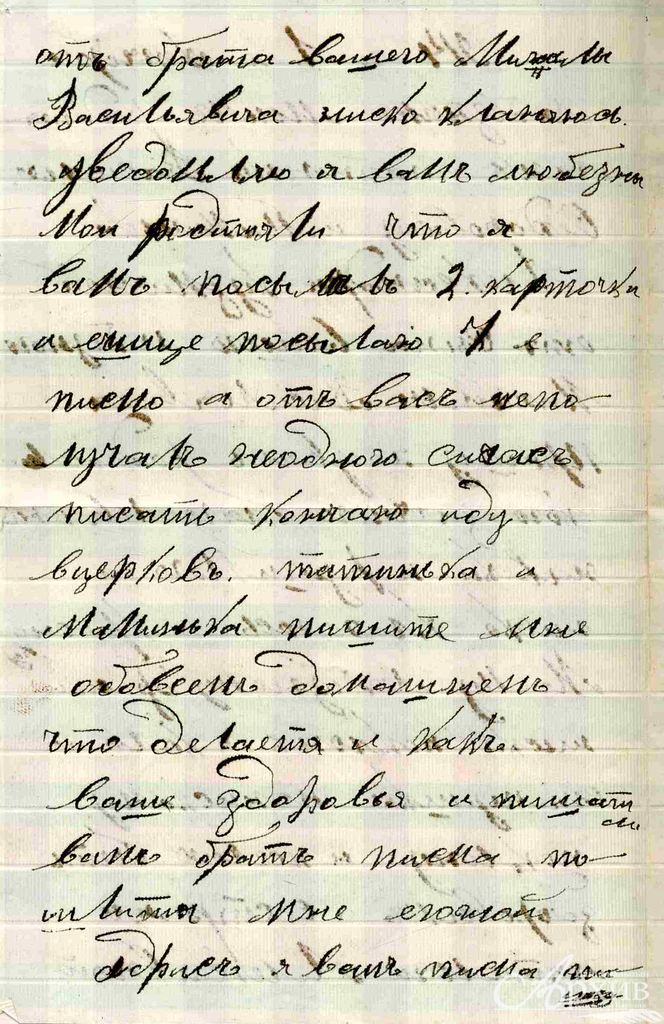 отъ брата вашего Михалы
Васильявича ниско кланяюсь.
уведомляю я вамъ любезны
Мои родители что я
вамъ посылалъ 2 карточки
и ешище посылаю 7 е
писмо а отъ васъ непо
лучалъ неодного сичасъ
писать кончаю иду
вцерковъ. татинька и
Маминька пишите мне
обовсемъ домашнемъ
что делается и какъ
ваше здоровья и пишать
ли
вамъ братъ писма по
шлиты мне егочной
адрисъ я вамъ писма пи
шу
Архив